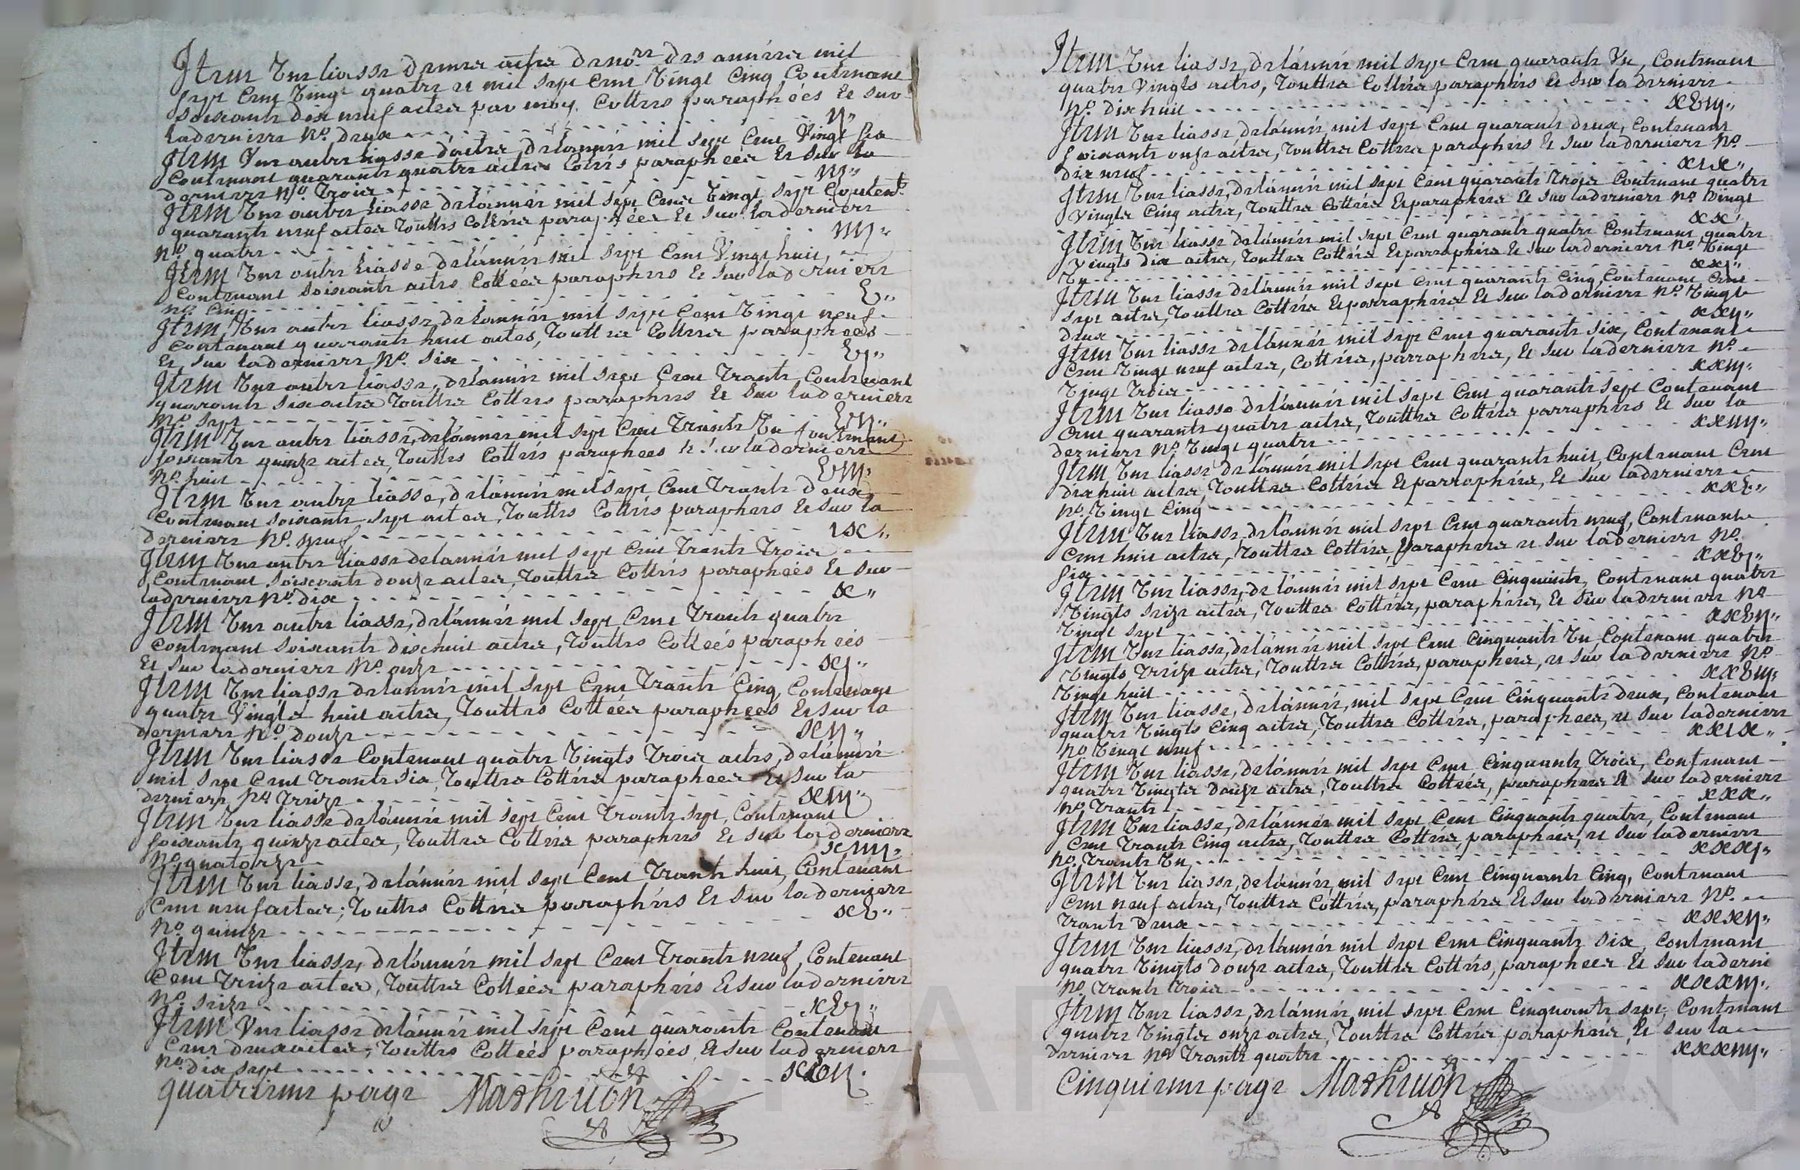 Item Une liasse d'autres actes de no.re des années mil
sept Cent Vingt quatre et mil sept Cent Vingt Cinq Contenant
soixante dix neuf actes par moy Cottés paraphées Et sur
la derniere No. deux - - - ıȷ„
Item Une autre liasse d'actes, de l'année mil sept Cent Vingt six
Contenant quarante quatre actes Cottés paraphées Et sur la
derniere No. Trois - - - ııȷ„
Item Une autre liasse de l'année mil sept Cent Vingt sept Content.
quarante neuf actes Touttes Cottées paraphées Et sur la derniere
No. quatre - - - ıııȷ„
Item Une autre liasse de l'année mil sept Cent Vingt huit,
Contenant soixante actes Cottées paraphées Et sur la derniere
No. Cinq - - - v„
Item, Une autre liasse, de l'année mil sept Cent Vingt neuf
Contenant quarante huit actes, Touttes Cottées paraphées
Et sur la derniere No. Six - - - vȷ„
Item Une autre liasse, de l'année mil sept Cent Trante, Contenant
quarante six actes Touttes Cottées paraphées Et sur la derniere
No. sept - - - vıȷ„
Item Une autre liasse, de l'année mil sept Cent Trante Un Contenant
soixante quinze actes, Touttes Cottées paraphées Et sur la derniere
No. huit - - - vııȷ„
Item Une autre liasse, de l'année mil sept Cent Trante deux
Contenant soixante sept actes, Touttes Cottées paraphées Et sur la
derniere No. neuf - - - ıx„
Item Une autre liasse de l'année mil sept Cent Trante Trois
Contenant soixante douze actes, Touttes Cottées paraphées Et sur
la derniere No. dix - - - x„
Item Une autre liasse, de l'année mil sept Cent Trante quatre
Contenant soixante dixhuit actes, Touttes Cottées paraphées
Et sur la derniere No. onze - - - xȷ„
Item Une liasse de l'année mil sept Cent Trante Cinq, Contenant
quatre Vingts huit actes, Touttes Cottées paraphées Et sur la
derniere No. douze - - - xıȷ„
Item Une liasse Contenant quatre Vingts Trois actes, de l'année
mil sept Cent Trante Six, Touttes Cottées paraphées Et sur la
derniere No. Treize - - - xııȷ„
Item Une liasse de l'année mil sept Cent Trante sept, Contenant
soixante quinze actes, Touttes Cottées paraphées Et sur la derniere
No. quatorze - - - xıııȷ„
Item Une liasse, de l'année mil sept Cent Trante huit, Contenant
Cent neuf actes; Touttes Cottées paraphées Et sur la derniere
No. quinze - - - xv„
Item Une liasse, de l'année mil sept Cent Trante neuf, Contenant
Cent Treize actes, Touttes Cottées paraphées Et sur la derniere
No. seize - - - xvȷ„
Item Une liasse de l'année mil sept Cent quarante Contenant
Cent deux actes; Touttes Cottées paraphées Et sur la derniere
No. dix sept - - - xvıȷ
quatrieme page
Item Une liasse, de l'année mil sept Cent quarante Un, Contenant
quatre Vingts actes, Touttes Cottées paraphées Et sur la derniere
No. dix huit - - - xvııȷ„
Item Une liasse de l'année mil sept Cent quarante deux, Contenant
soixante onze actes, Touttes Cottées paraphées Et sur la derniere No.
dix neuf - - - xıx„
Item Une liasse, de l'année mil sept Cent quarante Trois Contenant quatre
Vingts Cinq actes, Touttes Cottées Et paraphées Et sur la derniere No. Vingt
- - - xx„
Item Une liasse de l'année mil sept Cent quarante quatre Contenant quatre
Vingts dix actes, Touttes Cottées Et paraphées Et sur la derniere No. Vingt
Un - - - xxȷ„
Item Une liasse de l'année mil sept Cent quarante Cinq, Contenant Cent
sept actes, Touttes Cottées Et parraphées Et sur la derniere No. Vingt
deux - - - xxıȷ„
Item Une liasse de l'année mil sept Cent quarante Six, Contenant
Cent Vingt neuf actes, Cottées, parraphées, Et sur la derniere No.
Vingt Trois - - - xxııȷ„
Item Une liasse de l'année mil sept Cent quarante sept Contenant
Cent quarante quatre actes, Touttes Cottées parraphées Et sur la
derniere No. Vingt quatre - - - xxıııȷ„
Item Une liasse de l'année mil sept Cent quarante huit, Contenant Cent
dix huit actes, Touttes Cottées Et parraphées, Et sur la derniere
No. Vingt Cinq - - - xxv„
Item Une liasse, de l'année mil sept Cent quarante neuf, Contenant
Cent huit actes, Touttes Cottées paraphées et sur la derniere No.
Six - - - xxvȷ„
Item Une liasse, de l'année mil sept Cent Cinquante, Contenant quatre
Vingts seize actes, Touttes Cottées, paraphées, Et sur la derniere No.
Vingt sept - - - xxvıȷ„
Item Une liasse, de l'année mil sept Cent Cinquante Un Contenant quatre
Vingts Treize actes, Touttes Cottées, paraphées, et sur la derniere No.
Vingt huit - - - xxvııȷ„
Item Une liasse, de l'année, mil sept Cent Cinquante deux, Contenant
quatre Vingts Cinq actes, Touttes Cottées, paraphées, et sur la derniere
No. Vingt neuf - - - xxıx„
Item Une liasse, de l'année, mil sept Cent Cinquante Trois, Contenant
quatre Vingts Douze actes, Touttes Cottées, paraphées Et sur la derniere
No. Trante - - - xxx„
Item Une liasse, de l'année mil sept Cent Cinquante quatre, Contenant
Cent Trante Cinq actes, Touttes Cottées, paraphées, et sur la derniere
No. Trante Un - - - xxxȷ„
Item Une liasse, de l'année, mil sept Cent Cinquante Cinq, Contenant
Cent neuf actes, Touttes Cottées, paraphées Et sur la derniere No.
Trante Deux - - - xxxıȷ„
Item Une liasse, de l'année mil sept Cent Cinquante Six, Contenant
quatre Vingts douze actes, Touttes Cottées, paraphées Et sur la derniere
No. Trante Trois - - - xxxııȷ„
Item Une liasse, de l'année, mil sept Cent Cinquante sept, Contenant
quatre Vingts onze actes, Touttes Cottées paraphées, Et sur la
derniere No. Trante quatre - - - xxxıııȷ„
Cinquieme page